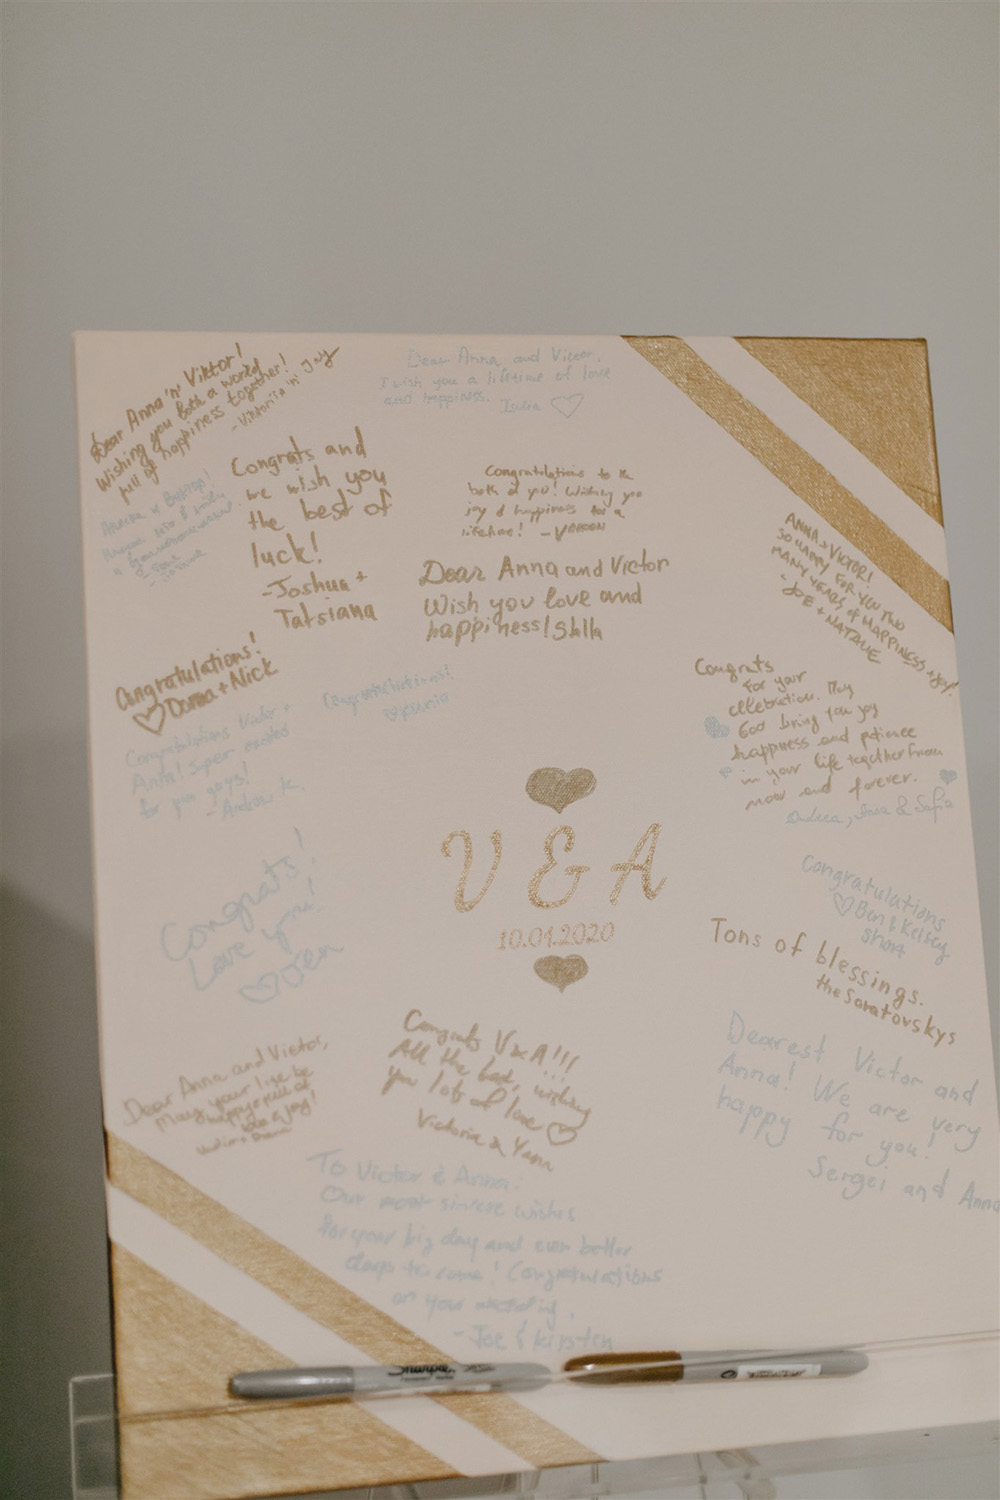 Dear Anna 'n' Viktor!
Wishing you both a world
full of happiness together!
- Viktoria 'n' Jay
Dear Anna and Victor,
I wish you a lifetime of love
and happiness. Iulia
Congrats and
we wish you
the best of
luck!
-Joshua +
Tatsiana
Congratulations to the
both of you! Wishing you
joy & happiness for a
lifetime!
Dear Anna and Victor
Wish you love and
happiness! Stella
ANNA + VICTOR!
SO HAPPY FOR YOU TWO
MANY YEARS OF HAPPINESS + Joy!
JOE + NATALIE
Congratulations!
Donna + Nick
Congratulations!
Congratulations Victor +
Anna! Super excited
for you guys!
- Andrew K.
Congrats
for your
celebration. May
God bring you joy
happiness and patience
in your life together from
now and forever.
& Sofia
V & A
10.01.2020
Congrats!
Love you!
Jen
Congratulations
Ben & Kelsey
Short
Tons of blessings.
the Saratovskys
Dear Anna and Victor,
May your life be
happy & full of
love & joy!
Congrats V & A!!!
All the best, wishing
you lots of love
Victoria & Yann
Dearest Victor and
Anna! We are very
happy for you!
Sergei and Anna
To Victor & Anna:
Our most sincere wishes
for your big day and even better
days to come! Congratulations
on your wedding.
- Joe & Kirsten
Sharpie